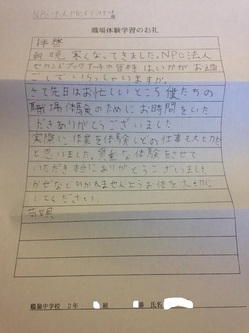 NPO法人
職場体験学習のお礼
拝啓
朝晩寒くなってきました。NPO法人
セカンドブックアーチの皆様はいかがお過
ごしていらっしゃいますか。
さて先日はお忙しいところ僕たちの
職場体験のためにお時間をいた
だきありがとうございました
実際に作業を体験しどの仕事も大変だ
と思いました。貴重な体験をさせて
いただき本当にありがとうございました
かぜなどひかれませんようお体を大切に
してください。
敬具
中学校 2年 組 番 氏名